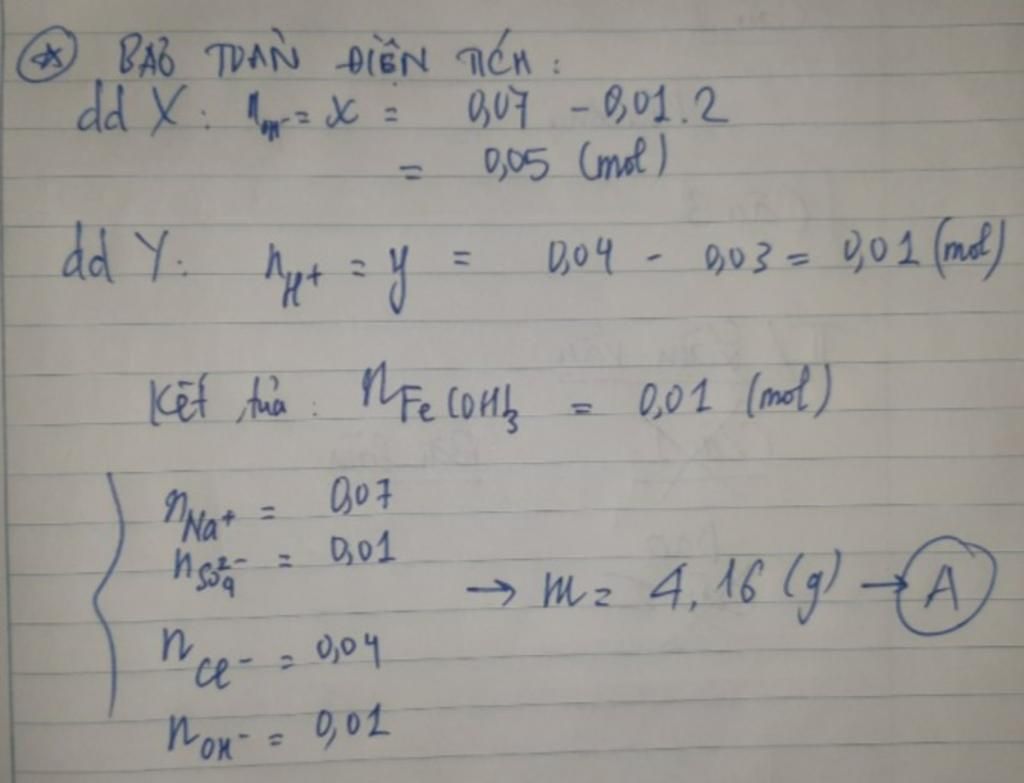 * BẢO TOÀN ĐIỆN TÍCH:
dd X: nOH⁻ = x = 0,07 - 0,01.2
= 0,05 (mol)
dd Y: nH⁺ = y = 0,04 - 0,03 = 0,01 (mol)
Kết tủa: nFe(OH)₃ = 0,01 (mol)
nNa⁺ = 0,07
nSO₄²⁻ = 0,01
→ m = 4,16 (g) → A
nCl⁻ = 0,04
nOH⁻ = 0,01